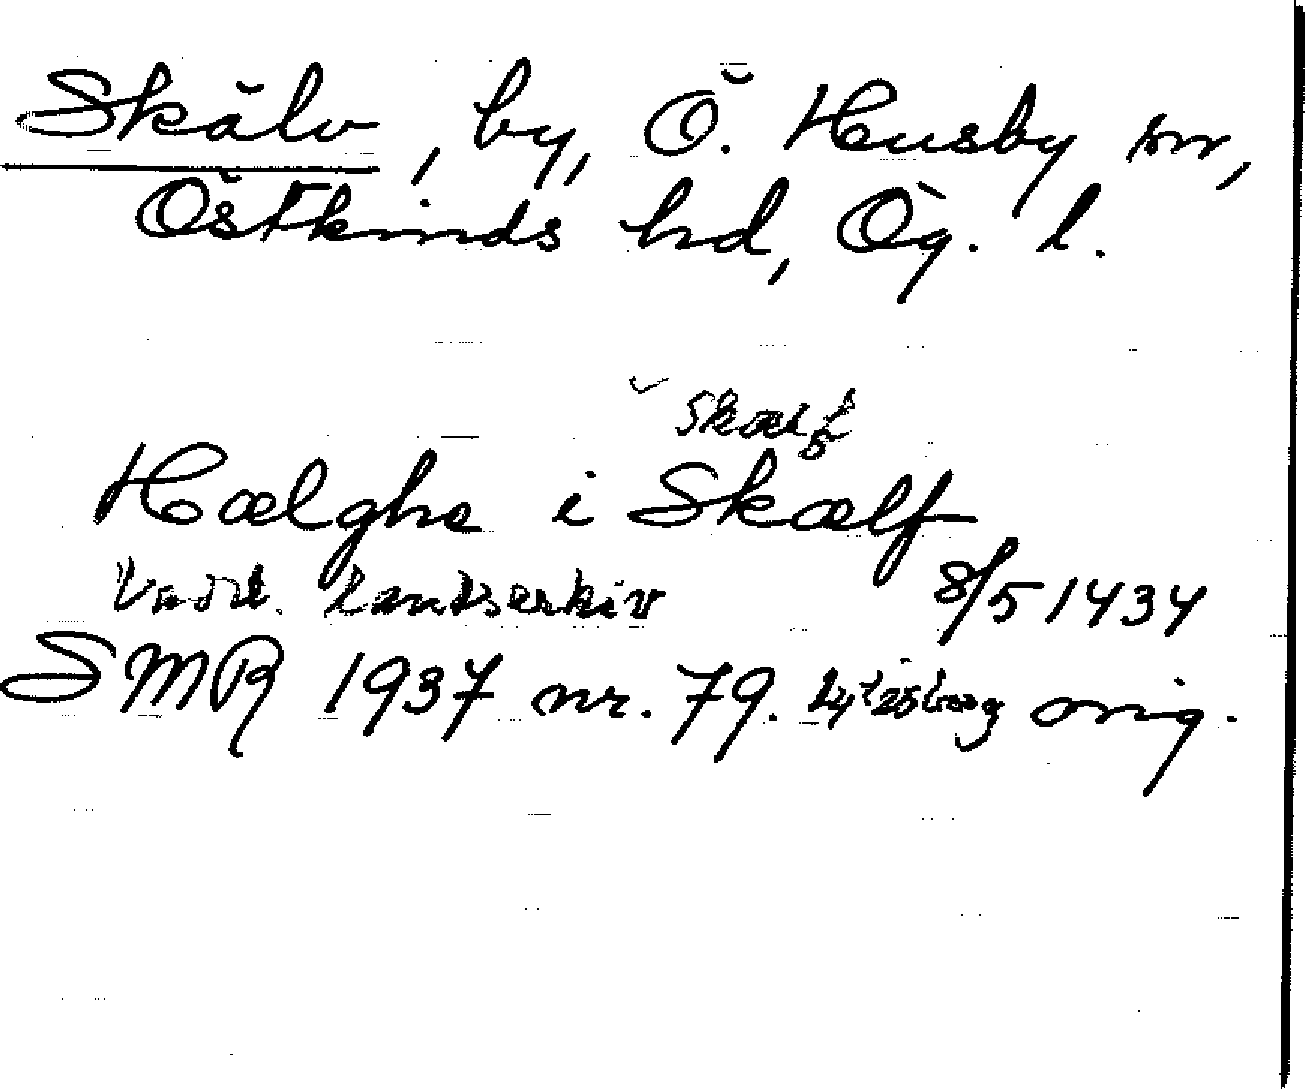 Skälv, by, Ö. Husby sn,
Östkinds hd, Ög. l.
Skælf
Hælghe i Skælf
Vadst. Landsarkiv 8/5 1434
SMR 1937 nr. 79. orig.